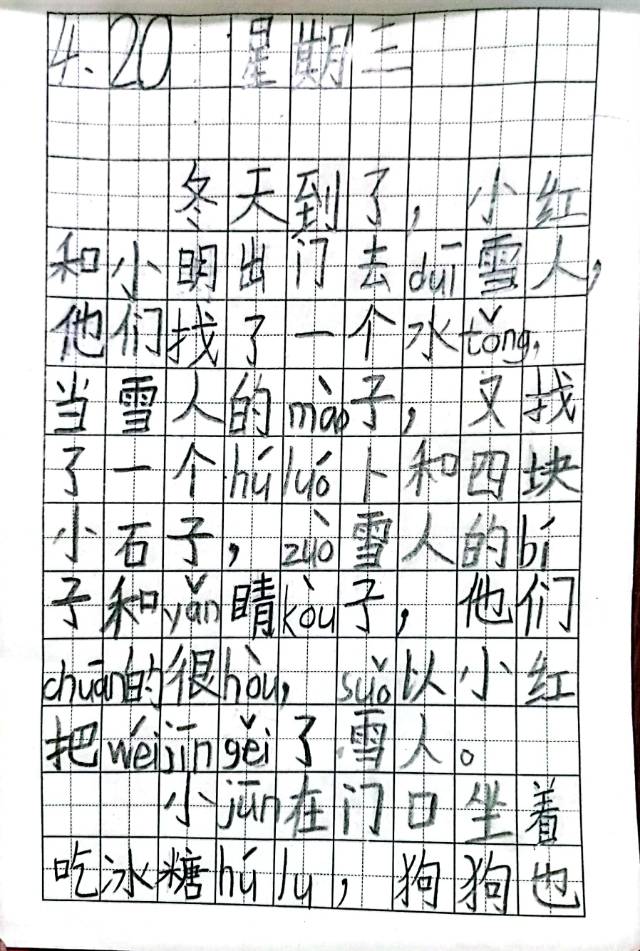 4.20 星期三
冬天到了，小红
和小明出门去duī雪人，
他们找了一个水tǒng，
当雪人的mào子，又找
了一个húluó卜和四块
小石子，zuò雪人的bí
子和yǎn睛kòu子，他们
chuān的很hòu，suǒ以小红
把wéijīngěi了雪人。
小jūn在门口坐着
吃冰糖húlu，狗狗也